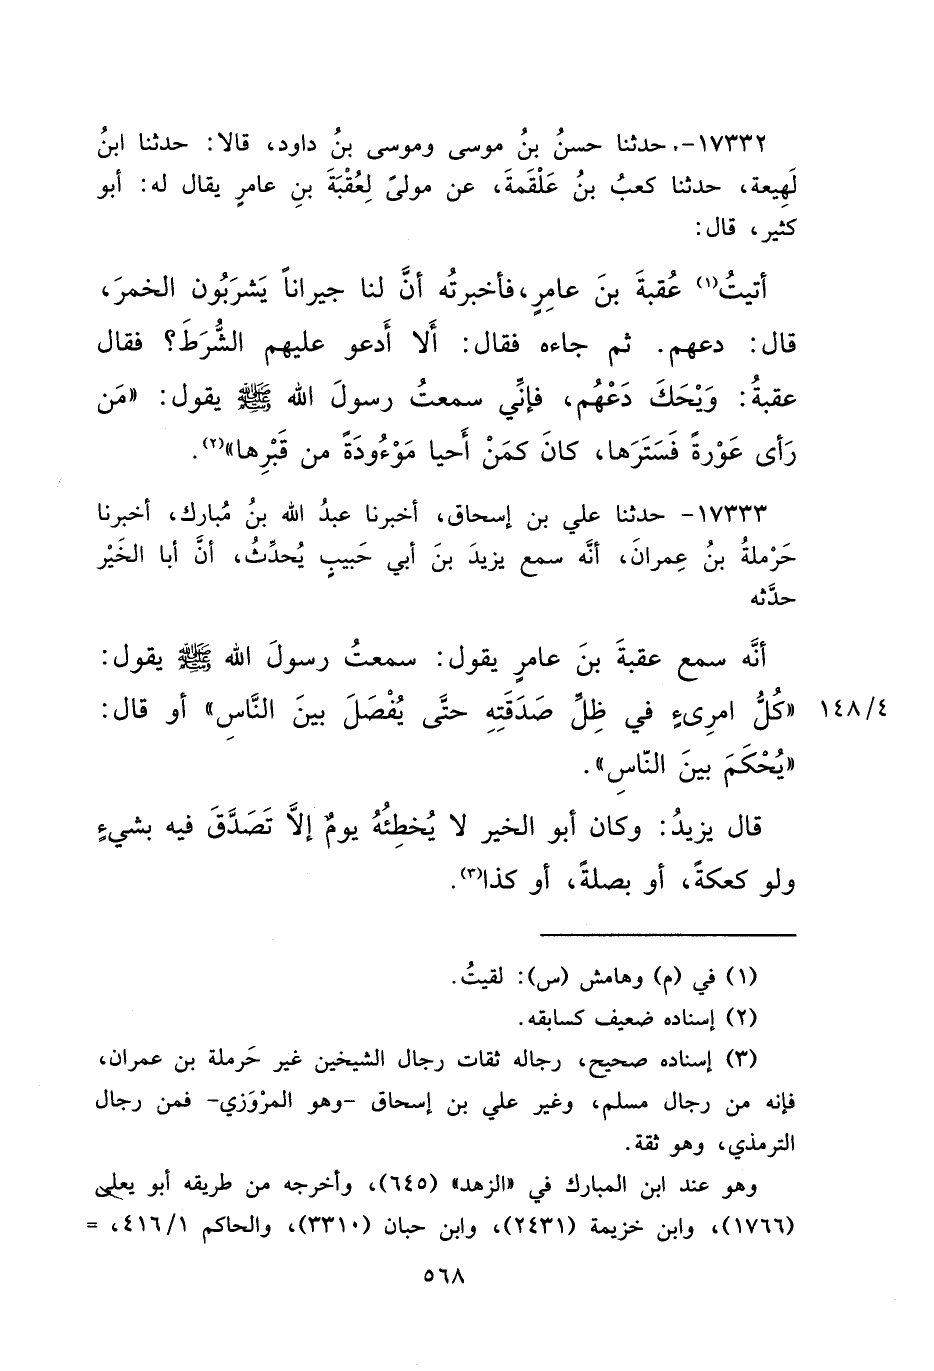 ١٧٣٣٢- حدثنا حسنُ بنُ موسى وموسى بنُ داود، قالا: حدثنا ابنُ
لَهِيعة، حدثنا كعبُ بنُ عَلْقمةَ، عن مولىً لِعُقْبَةَ بنِ عامرٍ يقال له: أبو
كثير، قال:
أتيتُ(١) عُقبةَ بنَ عامِرٍ،فأخبرتُه أنَّ لنا جيراناً يَشرَبُون الخمرَ،
قال: دعهم. ثم جاءه فقال: أَلا أَدعو عليهم الشُّرَطَ؟ فقال
عقبةُ: وَيْحَكَ دَعْهُم، فإنِّي سمعتُ رسولَ الله ﷺ يقول: «مَن
رَأى عَوْرةً فَسَتَرَها، كانَ كمَنْ أَحيا مَوْءُودَةً من قَبْرِها»(٢).
١٧٣٣٣- حدثنا علي بن إسحاق، أخبرنا عبدُ الله بنُ مُبارك، أخبرنا
حَرْملةُ بنُ عِمرانَ، أنَّه سمع يزيدَ بنَ أبي حَبيبٍ يُحدِّثُ، أنَّ أبا الخَيْر
حدَّثه
أنَّه سمع عقبةَ بنَ عامرٍ يقول: سمعتُ رسولَ الله ﷺ يقول:
«كُلُّ امرِىءٍ في ظِلِّ صَدَقَتِهِ حتَّى يُفْصَلَ بينَ النَّاسِ» أو قال: ١٤٨/٤
«يُحْكَمَ بينَ النّاسِ».
قال يزيدُ: وكان أبو الخير لا يُخطِئُهُ يومٌ إلاَّ تَصَدَّقَ فيه بشيءٍ
ولو كعكةً، أو بصلةً، أو كذا(٣).
(١) في (م) وهامش (س): لقيتُ.
(٢) إسناده ضعيف كسابقه.
(٣) إسناده صحيح، رجاله ثقات رجال الشيخين غير حَرملة بن عمران،
فإنه من رجال مسلم، وغير علي بن إسحاق -وهو المرْوَزي- فمن رجال
الترمذي، وهو ثقة.
وهو عند ابن المبارك في «الزهد» (٦٤٥)، وأخرجه من طريقه أبو يعلى
(١٧٦٦)، وابن خزيمة (٢٤٣١)، وابن حبان (٣٣١٠)، والحاكم ٤١٦/١، =
٥٦٨